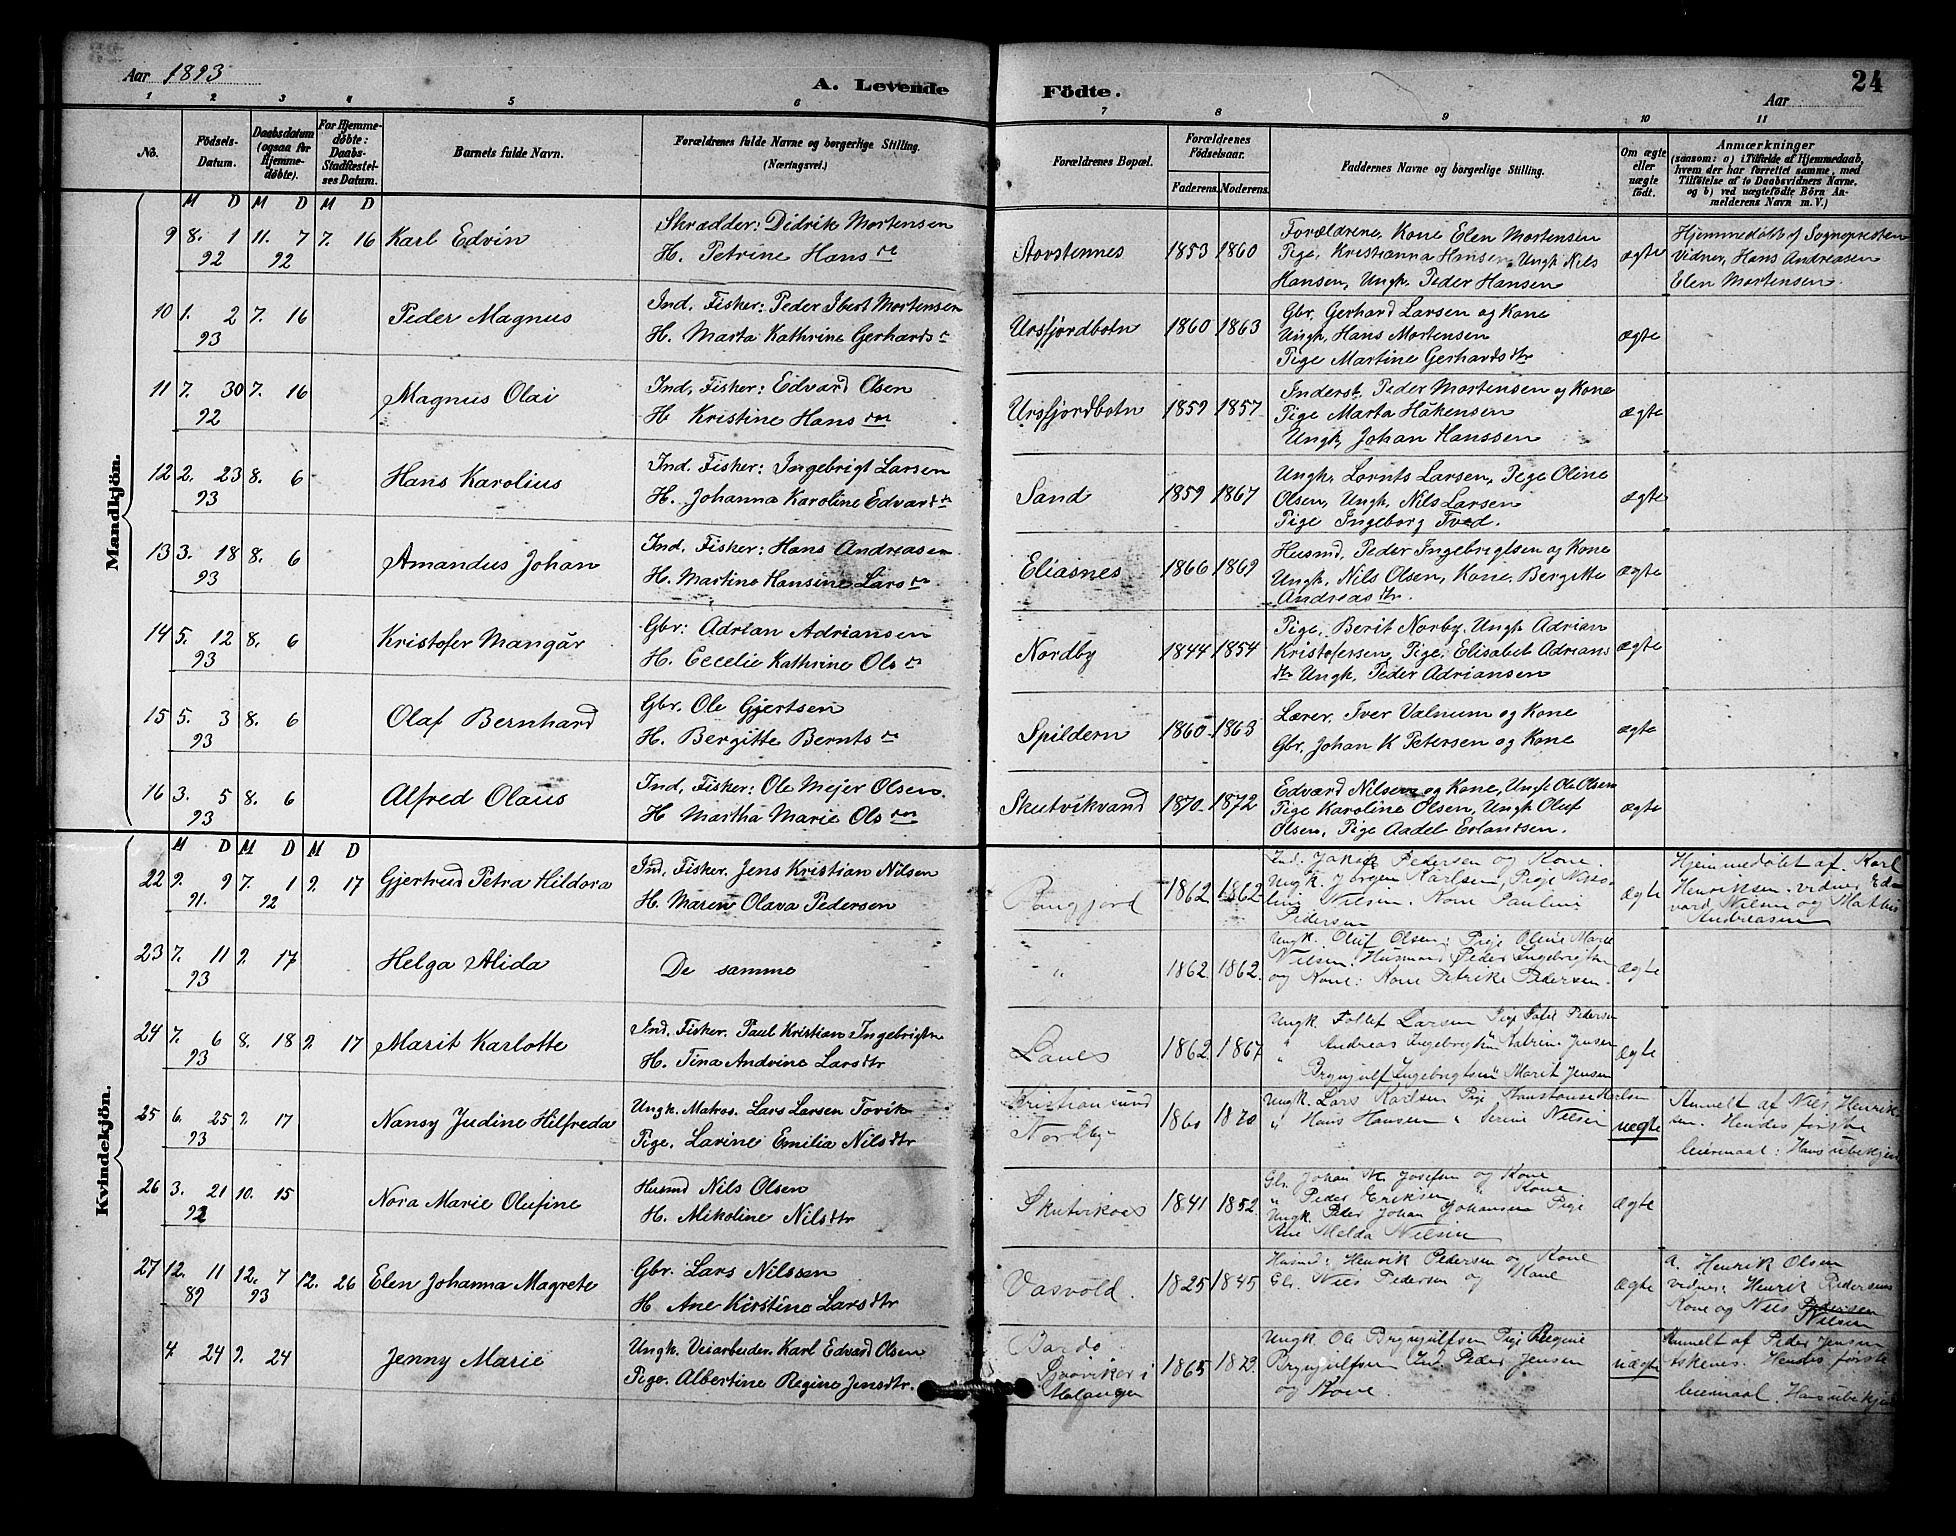 Aar 1893
A. Levende
Födte.
24
Aar
1 2 3 4 5 6 7 8 9 10 11
No.
Födsels-Datum.
Daabsdatum (ogsaa for Hjemmedøbte).
For Hjemmedøbte: Daabs-Stadfæstelses Datum.
Barnets fulde Navn.
Forældrenes fulde Navne og borgerlige Stilling. (Næringsvei.)
Forældrenes Bopæl.
Forældrenes Födselsaar.
Faderens. Moderens.
Faddernes Navne og borgerlige Stilling.
Om ægte eller uægte födt.
Anmærkninger
(saasom: a) i Tilfælde af Hjemmedaab, hvem der har forrettet samme, med Tilföielse af to Daabsvidners Navne, og b) ved uægtefödte Börn Anmelderens Navn m. V.)
Mandkjön.
M D M D M D
9 8. 1 92 11. 7 92 7. 16 Karl Edvin
Skrædder: Didrik Mortensen
H. Petrine Hans
1853 1860
Forældrene, Kone Elen Mortensen
Pige, Kristianna Hansen, Ungk Nils
Hansen, Ungk. Peder Hansen
ægte
Hjemmedöbt af Sognepresten
Vidner, Hans Andreasen
Elen Mortensen.
10 1. 2 93 7. 16 Peder Magnus
Ind. Fisker: Peder Ibert Mortensen
H. Marta Kathrine Gerhards
Ursfjordbotn 1860 1863
Gbr, Gerhard Larsen og Kone
Ungk, Hans Mortensen
Pige Martine Gerhardsdtr
ægte
11 7. 30 92 7. 16 Magnus Olai
Ind, Fisker: Edvard Olsen
H Kristine Hans
Ursfjordbotn 1859 1857
Inderst, Peder Mortensen og Kone
Pige Marta Håkensen
Ungk, Johan Hanssen
ægte
12 2. 23 93 8. 6 Hans Karolius
Ind. Fisker: Ingebrigt Larsen
H. Johanna Karoline Edvards
Sand 1859 1867
Ungk, Lornts Larsen, Pige Oline
Olsen, Ungk, Nils Larsen
Pige Ingeborg
ægte
13 3. 18 93 8. 6 Amandus Johan
Ind. Fisker: Hans Andreasen
H. Martine Hansine Lars
Eliasnes 1866 1869
Husmd, Peder Ingebrigtsen og Kone
Ungk, Nils Olsen, Kone, Bergitte
Andreasdtr.
ægte
14 5. 12 93 8. 6 Kristofer Mangår
Gbr: Adrian Adriansen
H. Cecelie Kathrine Ols
Nordby 1844 1854
Pige, Berit Norby. Ungk Adrian
Kristofersen, Pige, Elisabet Adrians
dtr Ungk, Peder Adriansen
ægte
15 5. 3 93 8. 6 Olaf Bernhard
Gbr. Ole Gjertsen
H. Bergitte Bernts
Spildern 1860 1863
Lærer, Iver Valnum og Kone
Gbr, Johan K Petersen og Kone
ægte
16 3. 5 93 8. 6 Alfred Olaus
Ind, Fisker: Ole Mejer Olsen
H Martha Marie Ols
Skutvikvand 1870 1872
Edvard Nilsen og Kone, Ungk Ole Olsen
Pige Karoline Olsen, Ungk Oluf
Olsen, Pige Aadel Erlandsen.
ægte
Kvindekjön.
M D M D M D
22 9. 9 91. 7. 1 92 9. 17 Gjertrud Petra Hildora
Ind, Fisker, Jens Kristian Nilsen
H. Maren Olava Pedersen
1862 1862
Ind. Jakob Pedersen og Kone.
Ungk. Jörgen Karlsen, Pige Niko-
line Nilsen. Kone Pauline
Pedersen
ægte
Hjemmedöbt af Karl
Henriksen. vidner Ed-
vard Nilsen og Mathis
Andreasen
23 7. 11 93 9. 17 Helga Alida
De samme
" 1862 1862
Ungk. Oluf Olsen, Pige Oline Marie
Nilsen. Husmand Peder Ingebrigtsen
og Kone. Kone Petrike Pedersen.
ægte
24 7. 6 93 8. 18 9. 17 Marit Karlotte
Ind, Fisker, Paul Kristian Ingebrigtsn
H. Tina Andrine Larsdtr
Lanes 1862 1867
Ungk. Tollef Larsen Pige Pedersen
" Andreas Ingebrigtsen Katrine Jensen
" Brynjulf Ingebrigtsen Marit Jensen
ægte
25 6. 25 93 9. 17 Nansy Judine Hilfreda
Ungk. Matros. Lars Larsen Torvik
Pige, Lavine Emilia Nilsdtr
Kristiansund
Nordby 1860 1870
Ungk. Lars Karlsen Pige Konstanse Karlsen
" Hans Hansen " Serine Nilsen
uægte
Anmelt af Nils Henrik-
sen. Hendes første
leiermaal; Hans ubekjent
26 3. 21 92 10. 15 Nora Marie Olufine
Husmd Nils Olsen
H. Mikoline Nilsdtr
1841 1852
Gbr. Johan M. Josefsen og Kone
" Peder Eriksen " Kone
Ungk. Peder Johan Johansen Pige
Ane Melda Nilsen
ægte
27 12. 11 89 12. 7 93 12. 26 Elen Johanna Magrete
Gbr. Lars Nilssen
H Ane Kirstine Larsdtr
Vasvold. 1825 1845
Husmd: Henrik Pedersen og Kone
Gbr. Nils Pedersen og Kone
ægte
a. Henrik Olsen
vidner: Henrik Pedersens
Kone og Nils Pedersen
Nilsen
4. 24 9. 24 Jenny Marie
Ungk. Veiarbeider Karl Edvard Olsen
Pige. Albertine Regine Jensdtr.
Bardo
i
Malangen
1865
Ungk Ole Brynjulfsen Pige Regine
Brynjulfsen Ind. Peder Jensen
og Kone.
uægte
Anmelt af Peder Jensen
Hendes første
leiermaal. Hans ubekjent